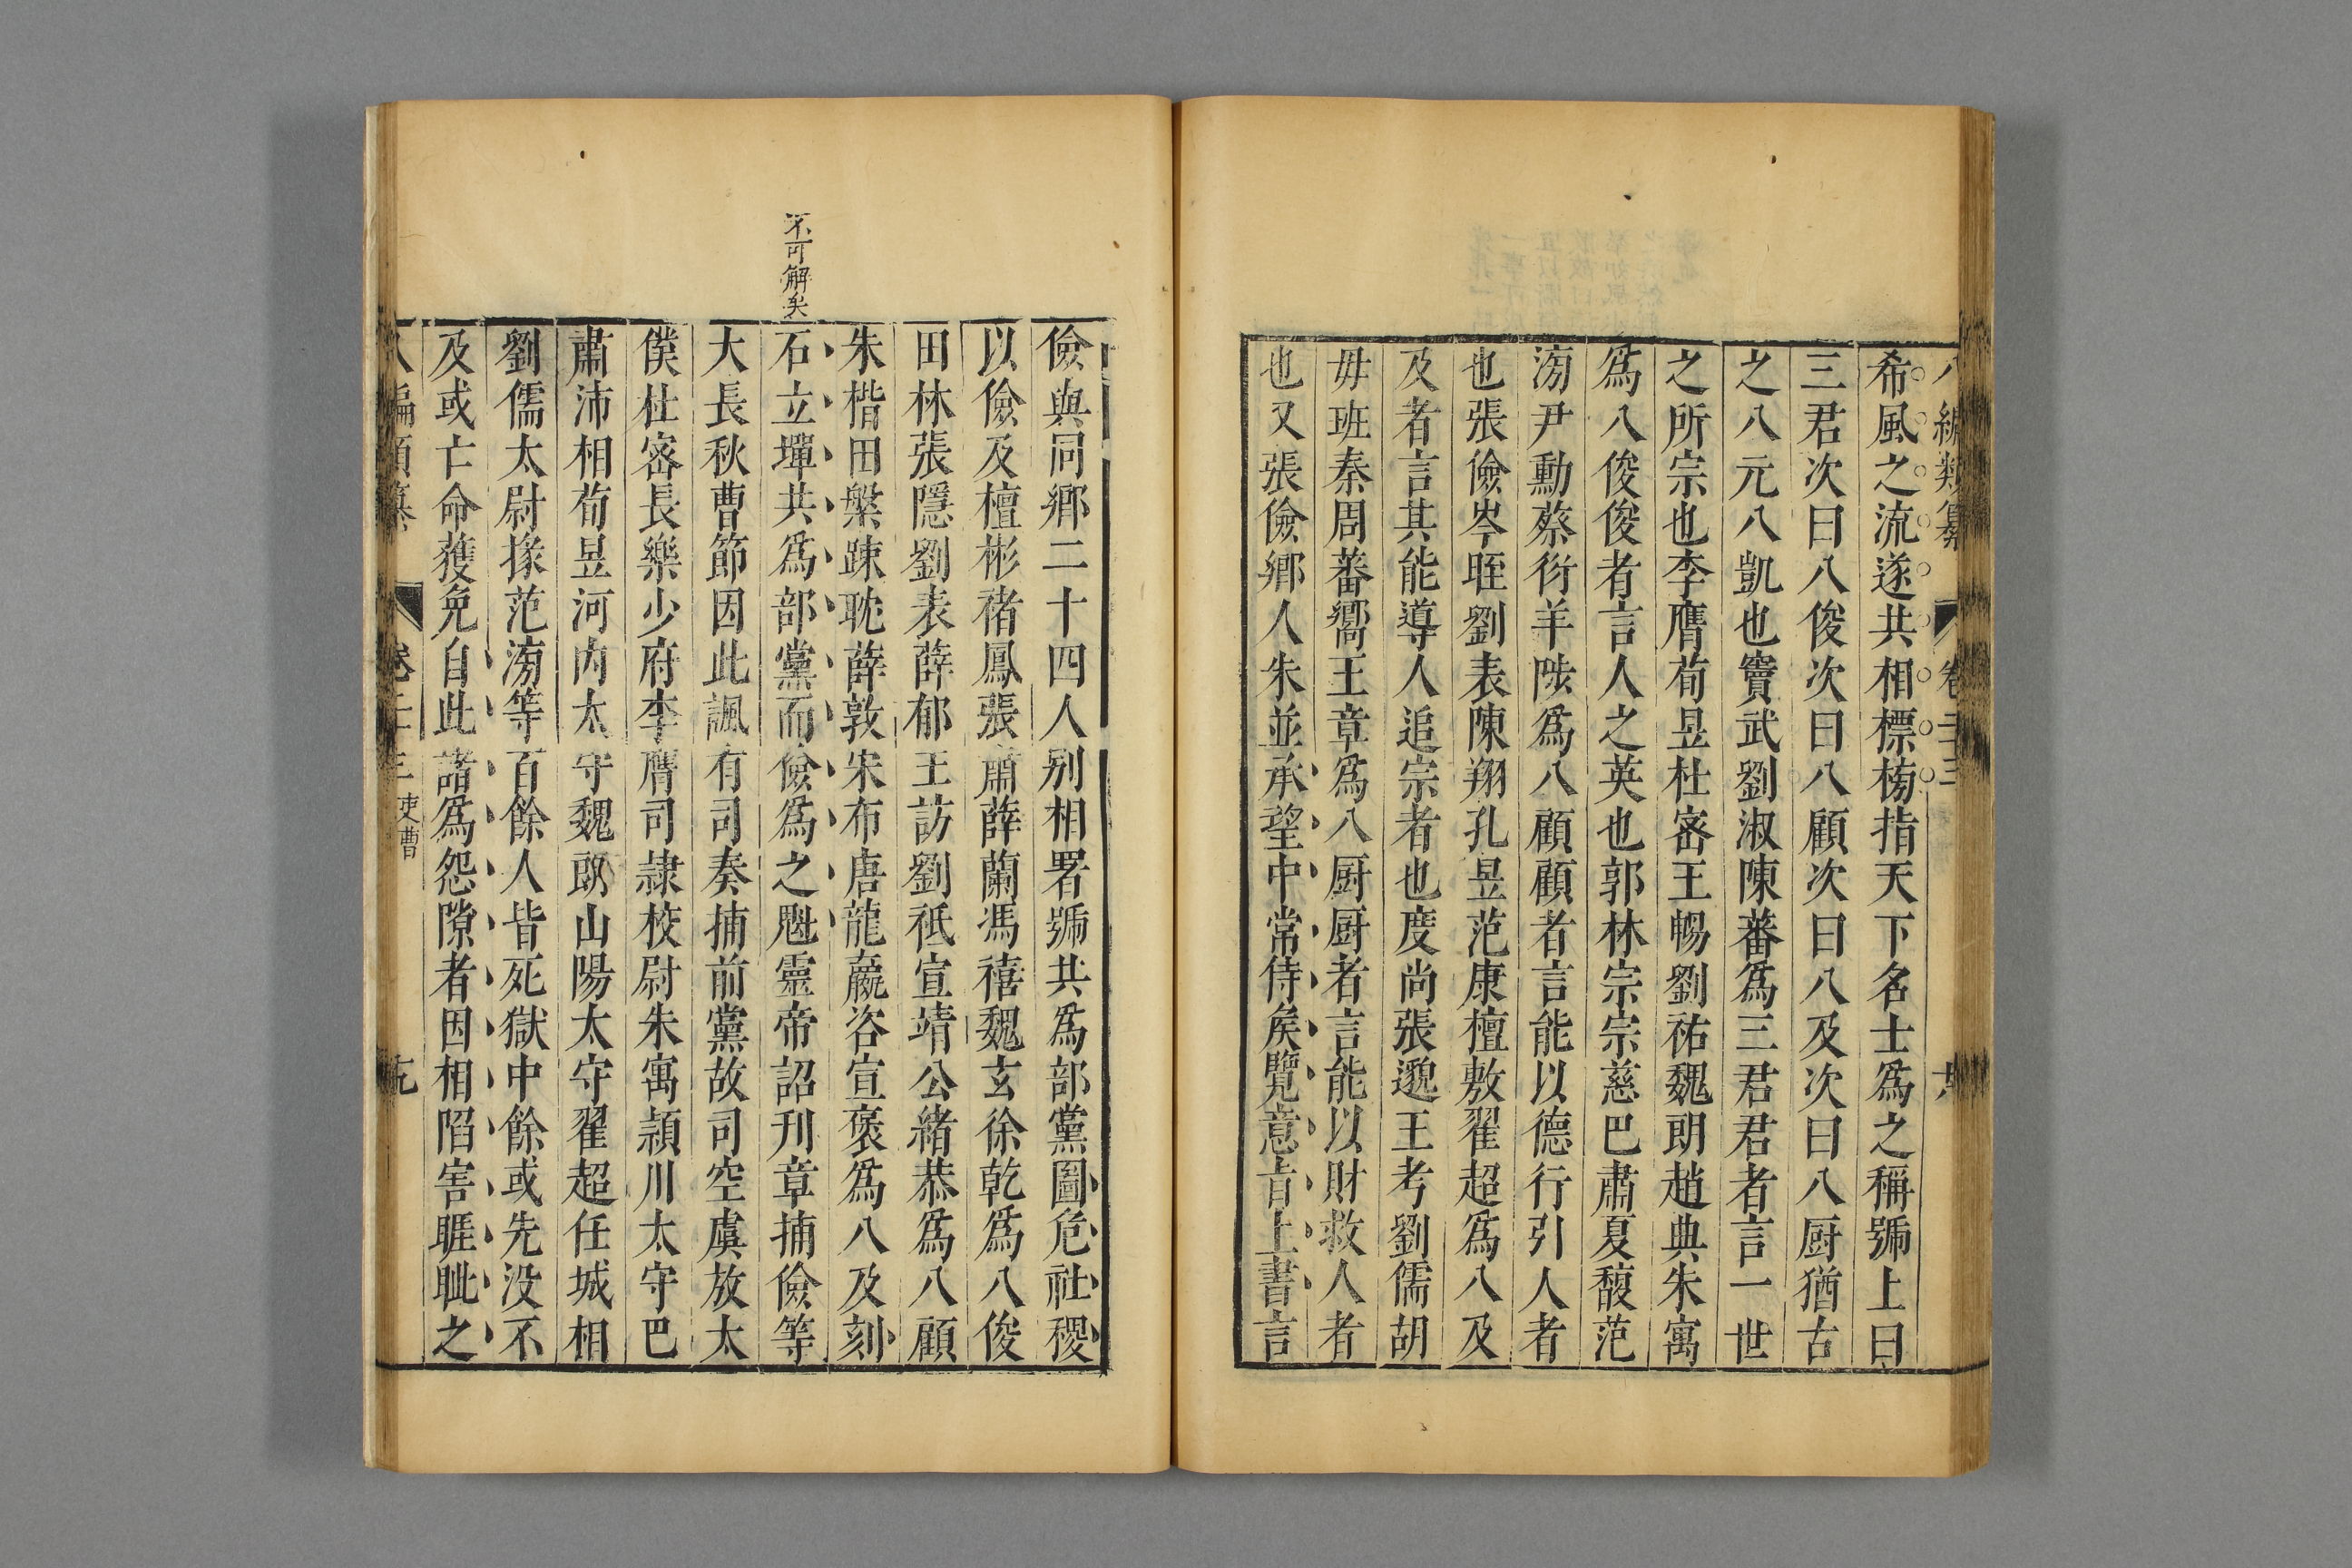 八編類纂 卷二十三 十八
希風之流遂共相標榜指天下名士爲之稱號上曰
三君次曰八俊次曰八顧次曰八及次曰八厨猶古
之八元八凱也竇武劉淑陳蕃爲三君君者言一世
之所宗也李膺荀昱杜密王暢劉祐魏朗趙典朱寓
爲八俊俊者言人之英也郭林宗宗慈巴肅夏馥范
滂尹勳蔡衍羊陟爲八顧顧者言能以德行引人者
也張儉岑晊劉表陳翔孔昱范康檀敷翟超爲八及
及者言其能導人追宗者也度尚張邈王考劉儒胡
毋班秦周蕃嚮王章爲八厨厨者言能以財救人者
也又張儉鄉人朱並承望中常侍矦覽意旨上書言
儉與同鄉二十四人别相署號共爲部黨圖危社稷
以儉及檀彬禇鳳張肅薛蘭馮禧魏玄徐乾爲八俊
田林張隱劉表薛郁王訪劉祗宣靖公緒恭爲八顧
朱楷田槃踈耽薛敦宋布唐龍嬴咨宣褒爲八及刻
不可解矣
石立墠共爲部黨而儉爲之魁靈帝詔刋章捕儉等
大長秋曹節因此諷有司奏捕前黨故司空虞放太
僕杜密長樂少府李膺司隷校尉朱寓頴川太守巴
肅沛相荀昱河内太守魏朗山陽太守翟超任城相
劉儒太尉掾范滂等百餘人皆死獄中餘或先没不
及或亡命獲免自此諸爲怨隙者因相陷害睚眦之
八編類纂 卷二十三 吏曹 十九